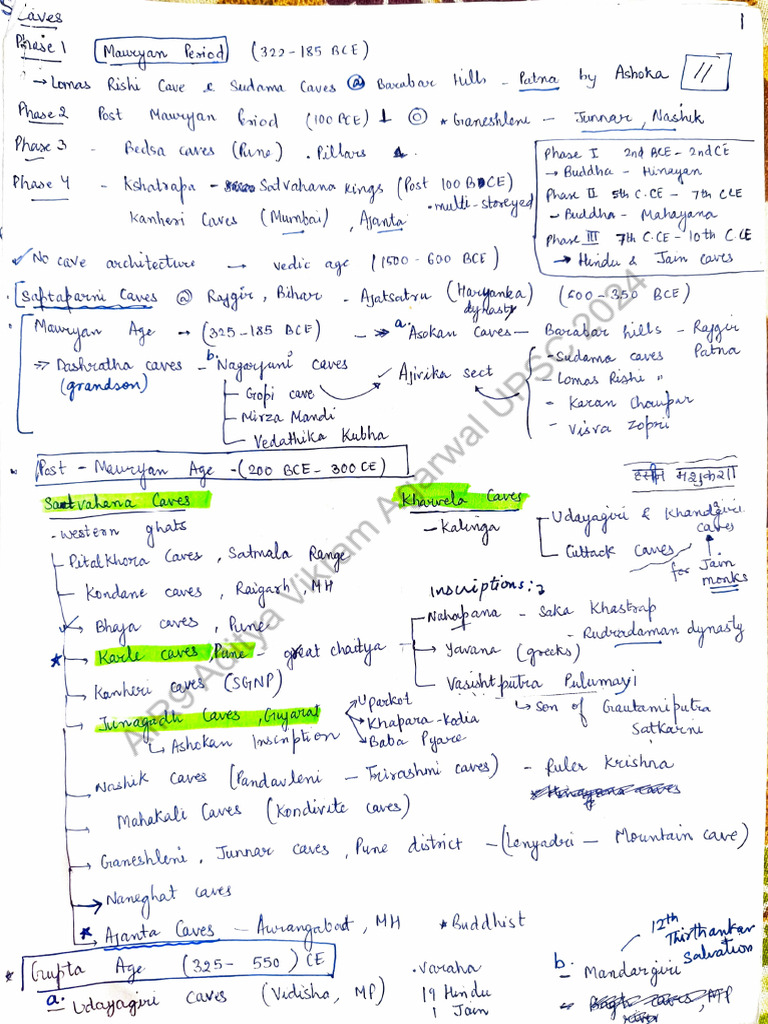 Caves
1
Phase 1 Mauryan Period (322-185 BCE)
→ Lomas Rishi Cave & Sudama Caves @ Barabar Hills - Patna by Ashoka
11
Phase 2 Post Mauryan Period (100 BCE) * Ganeshleni - Junnar, Nashik
Phase 3 - Bedsa caves (Pune) . Pillars
Phase 4 - Kshatrapa - Satvahana kings (Post 100 BCE)
• multi-storeyed
Kanheri Caves (Mumbai), Ajanta
Phase I 2nd BCE - 2nd CE
→ Buddha - Hinayan
Phase II 5th C.CE - 7th C.CE
- Buddha - Mahayana
Phase III 7th C.CE - 10th C.CE
→ Hindu & Jain caves
✓ No cave architecture → vedic age (1500-600 BCE)
• Saptaparni Caves @ Rajgir, Bihar - Ajatsatru (Haryanka dynasty) (600-350 BCE)
Mauryan Age → (325-185 BCE) → a. Asokan Caves - Barabar hills - Rajgir
Patna
- Sudama caves
- Lomas Rishi "
- Karan Choupar
- Visva Zopri
⇒ Dashratha caves - b. Nagarjuni caves
(grandson)
Ajivika sect
- Gopi cave
- Mirza Mandi
- Vedathika Kubha
Post - Mauryan Age - (200 BCE - 300 CE)
Satvahana Caves
- western ghats
- Pitalkhora Caves, Satmala Range
- Kondane caves, Raigarh, MH
- Bhaja caves, Pune
* → Karle caves, Pune - great chaitya
- Kanheri caves (SGNP)
- Junagadh Caves, Gujarat
Uparkot
Khapara-Kodia
Baba Pyare
↳ Ashokan Inscription
Kharvela Caves
- Kalinga
Udayagiri & Khandgiri caves
Cuttack caves
for Jain monks
Inscriptions:
Nahapana - Saka Khastrap
- Rudradaman dynasty
Yavana (greeks)
Vasishtputra Pulumayi
↳ son of Gautamiputra Satkarni
→ Nashik caves (Pandavleni - Trirashmi caves) - Ruler Krishna
Mahakali Caves (Kondivite caves)
→ Ganeshleni, Junnar caves, Pune district - (Lenyadri - Mountain cave)
→ Naneghat caves
* → Ajanta Caves - Aurangabad, MH * Buddhist
* Gupta Age (325-550) CE
a. Udayagiri Caves (Vidisha, MP)
. Varaha
19 Hindu
1 Jain
b. Mandargiri
12th Thirthankar Salvation
AIR9 Aditya Vikram Agarwal UPSC 2024